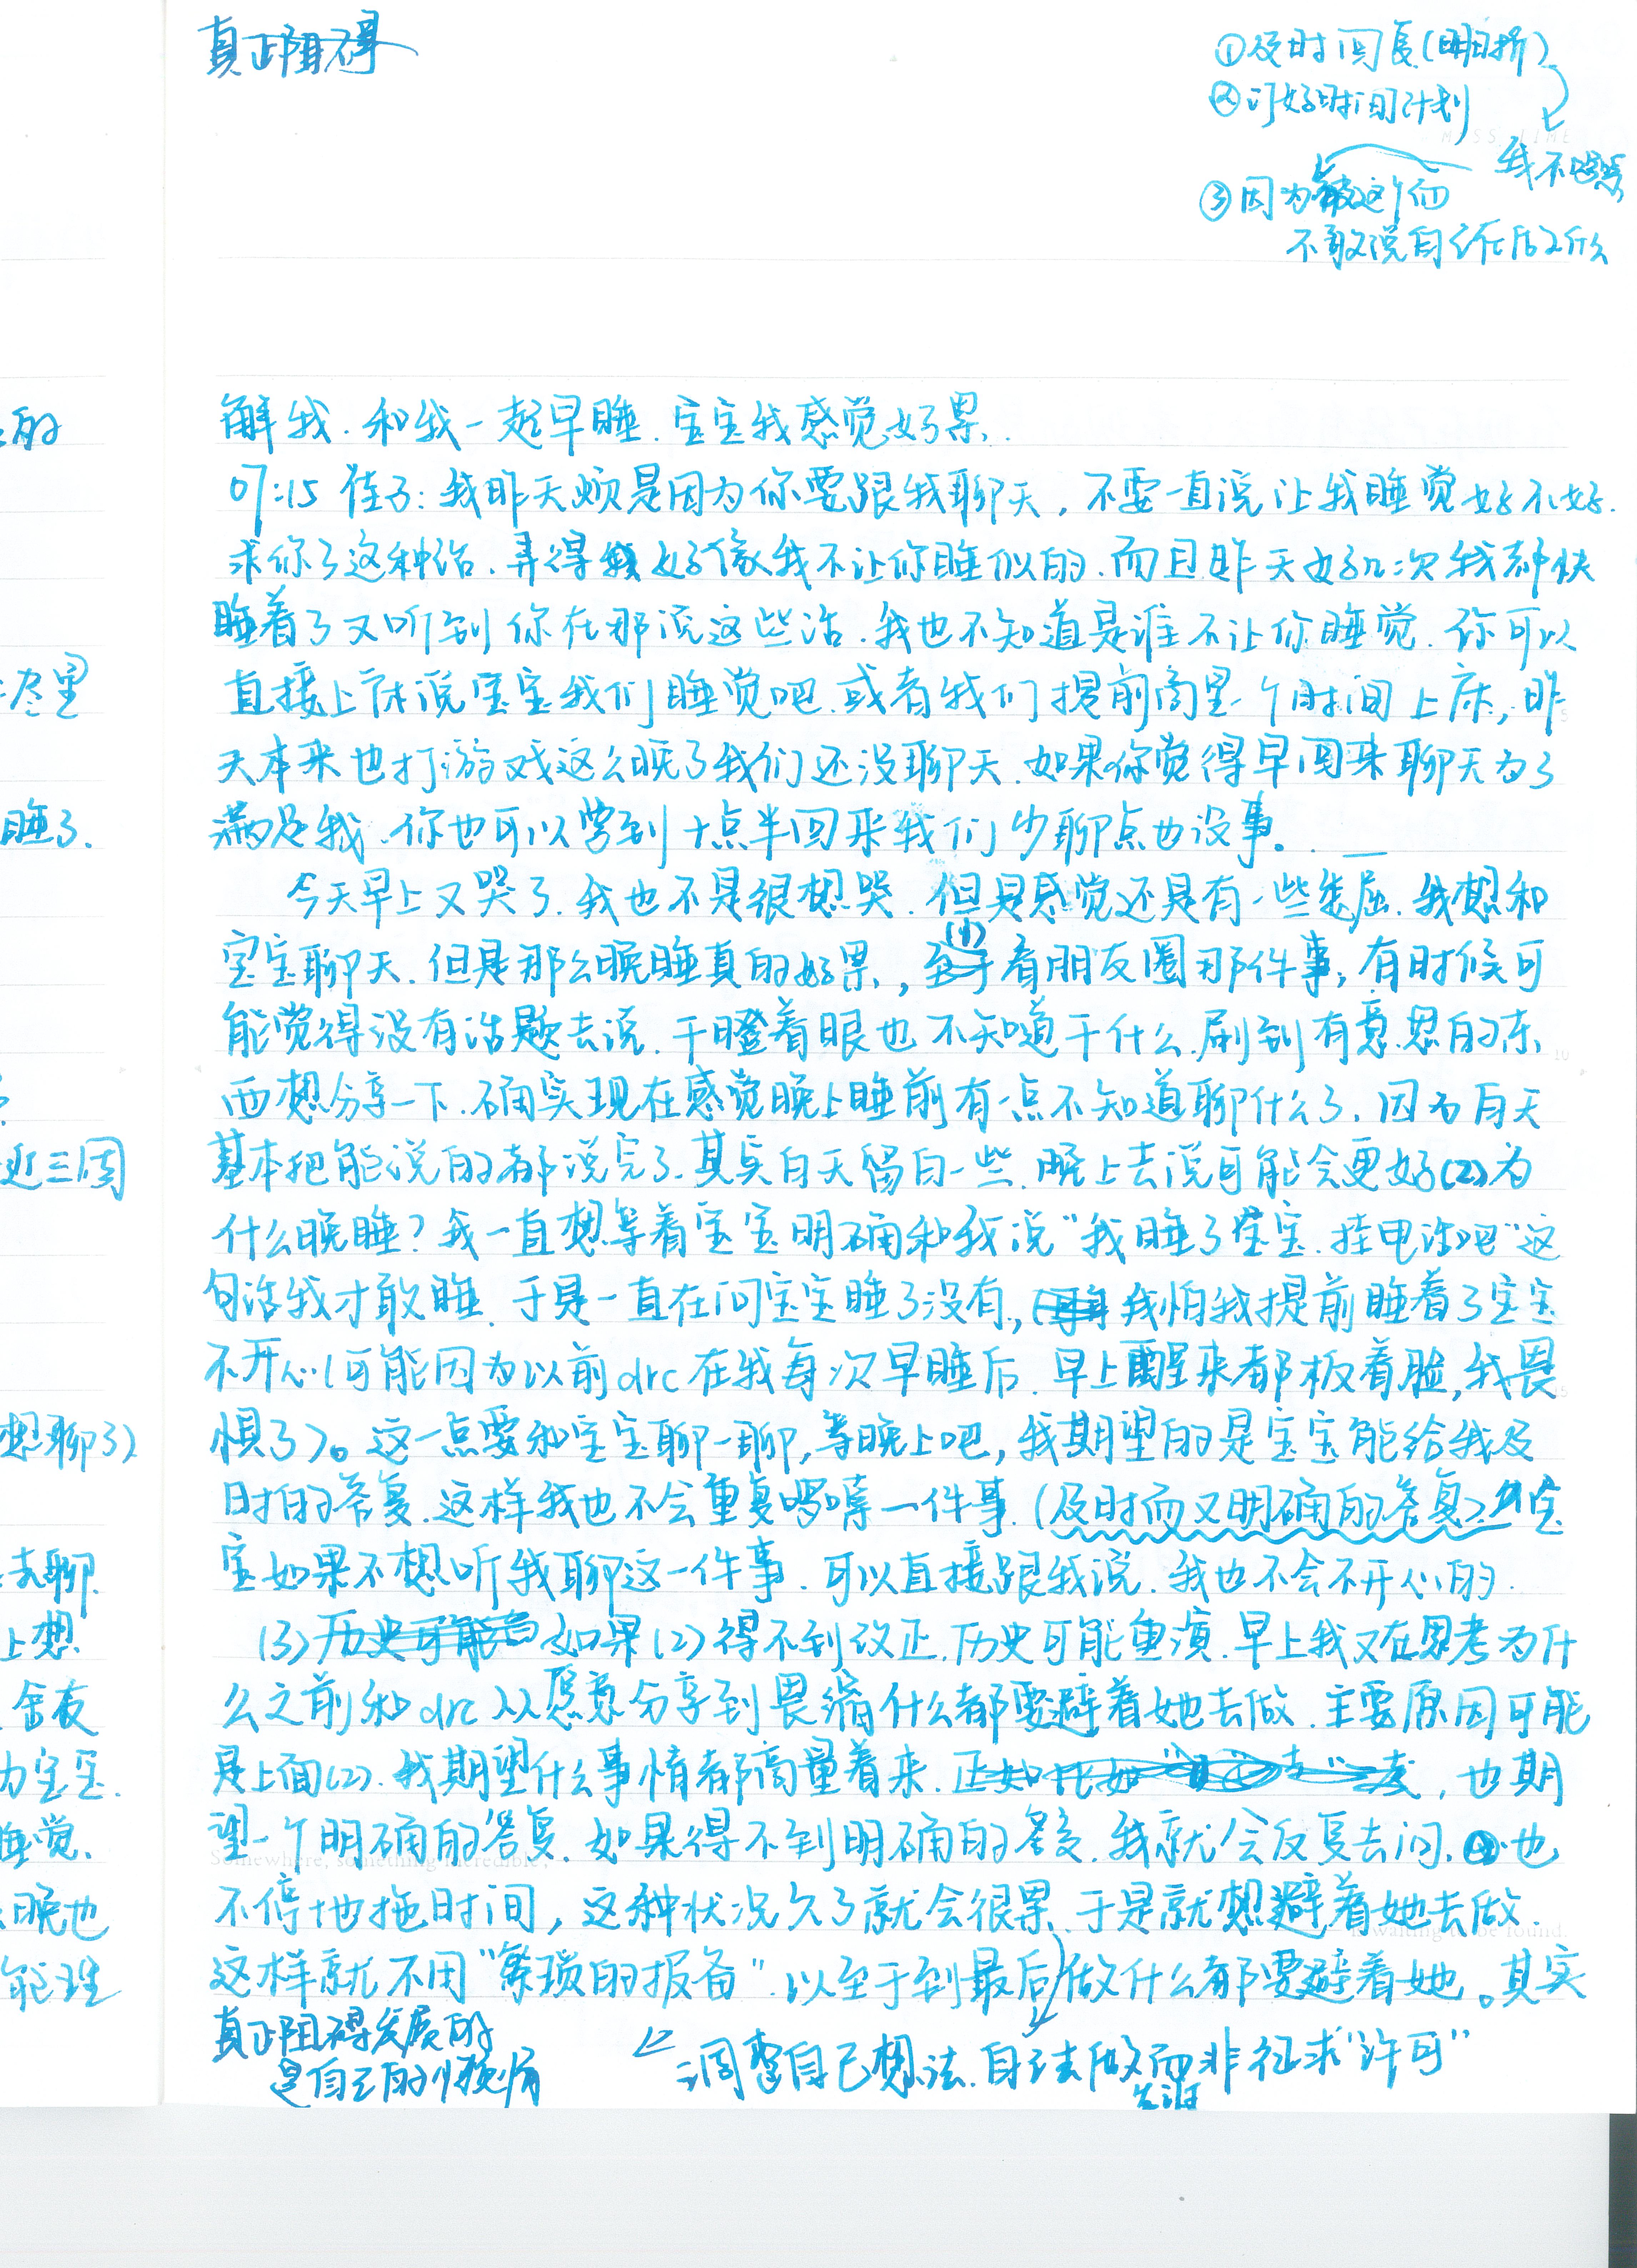 真正阻碍
①及时回复(明晰)
②订好时间计划
我不
③因为被这个而
不敢说自己在
解我.和我一起早睡.宝宝我感觉好累.
07:15 佳了:我昨天烦是因为你要跟我聊天,不要一直说让我睡觉好不好.
求你了这种话.弄得好像我不让你睡似的.而且昨天好几次我都快
睡着了又听到你在那说这些话.我也不知道是谁不让你睡觉.你可以
直接上床说宝宝我们睡觉吧.或者我们提前商量个时间上床,昨
天本来也打游戏这么晚了我们还没聊天.如果你觉得早回来聊天为了
满足我.你也可以学到十点半回来我们少聊点也没事。
今天早上又哭了.我也不是很想哭.但是感觉还是有一些委屈.我想和
宝宝聊天.但是那么晚睡真的好累,(1)看朋友圈那件事,有时候可
能觉得没有话题去说.干瞪着眼也不知道干什么.刷到有意思的东
西想分享一下.确实现在感觉晚上睡前有一点不知道聊什么了.因为白天
基本把能说的都说完了.其实白天留白一些.晚上去说可能会更好(2)为
什么晚睡?我一直想等着宝宝明确和我说“我睡了宝宝.挂电话吧”这
句话我才敢睡.于是一直在问宝宝睡了没有,我怕我提前睡着了宝宝
不开心(可能因为以前drc在我每次早睡后.早上醒来都板着脸,我畏
惧了)。这一点要和宝宝聊一聊,等晚上吧,我期望的是宝宝能给我及
时的答复.这样我也不会重复啰嗦一件事.(及时而又明确的答复)宝
宝如果不想听我聊这一件事.可以直接跟我说.我也不会不开心的.
(3)历史可能 如果(2)得不到改正.历史可能重演.早上我又在思考为什
么之前和drc从愿意分享到畏缩什么都要避着她去做.主要原因可能
是上面(2).我期望什么事情都商量着来.正如,也期
望一个明确的答复.如果得不到明确的答复.我就会反复去问.也
不停地拖时间,这种状况久了就会很累.于是就想避着她去做.
这样就不用“繁琐的报备”.以至于到最后做什么都要避着她。其实
真正阻碍发展的
是自己的
调整自己想法.自己去做而非征求“许可”
的
尽里
睡了.
近三周
想聊了)
去聊.
上想.
舍友
为宝宝.
睡觉.
晚也
能理
Somewhere, something incredible,
is waiting to be found.